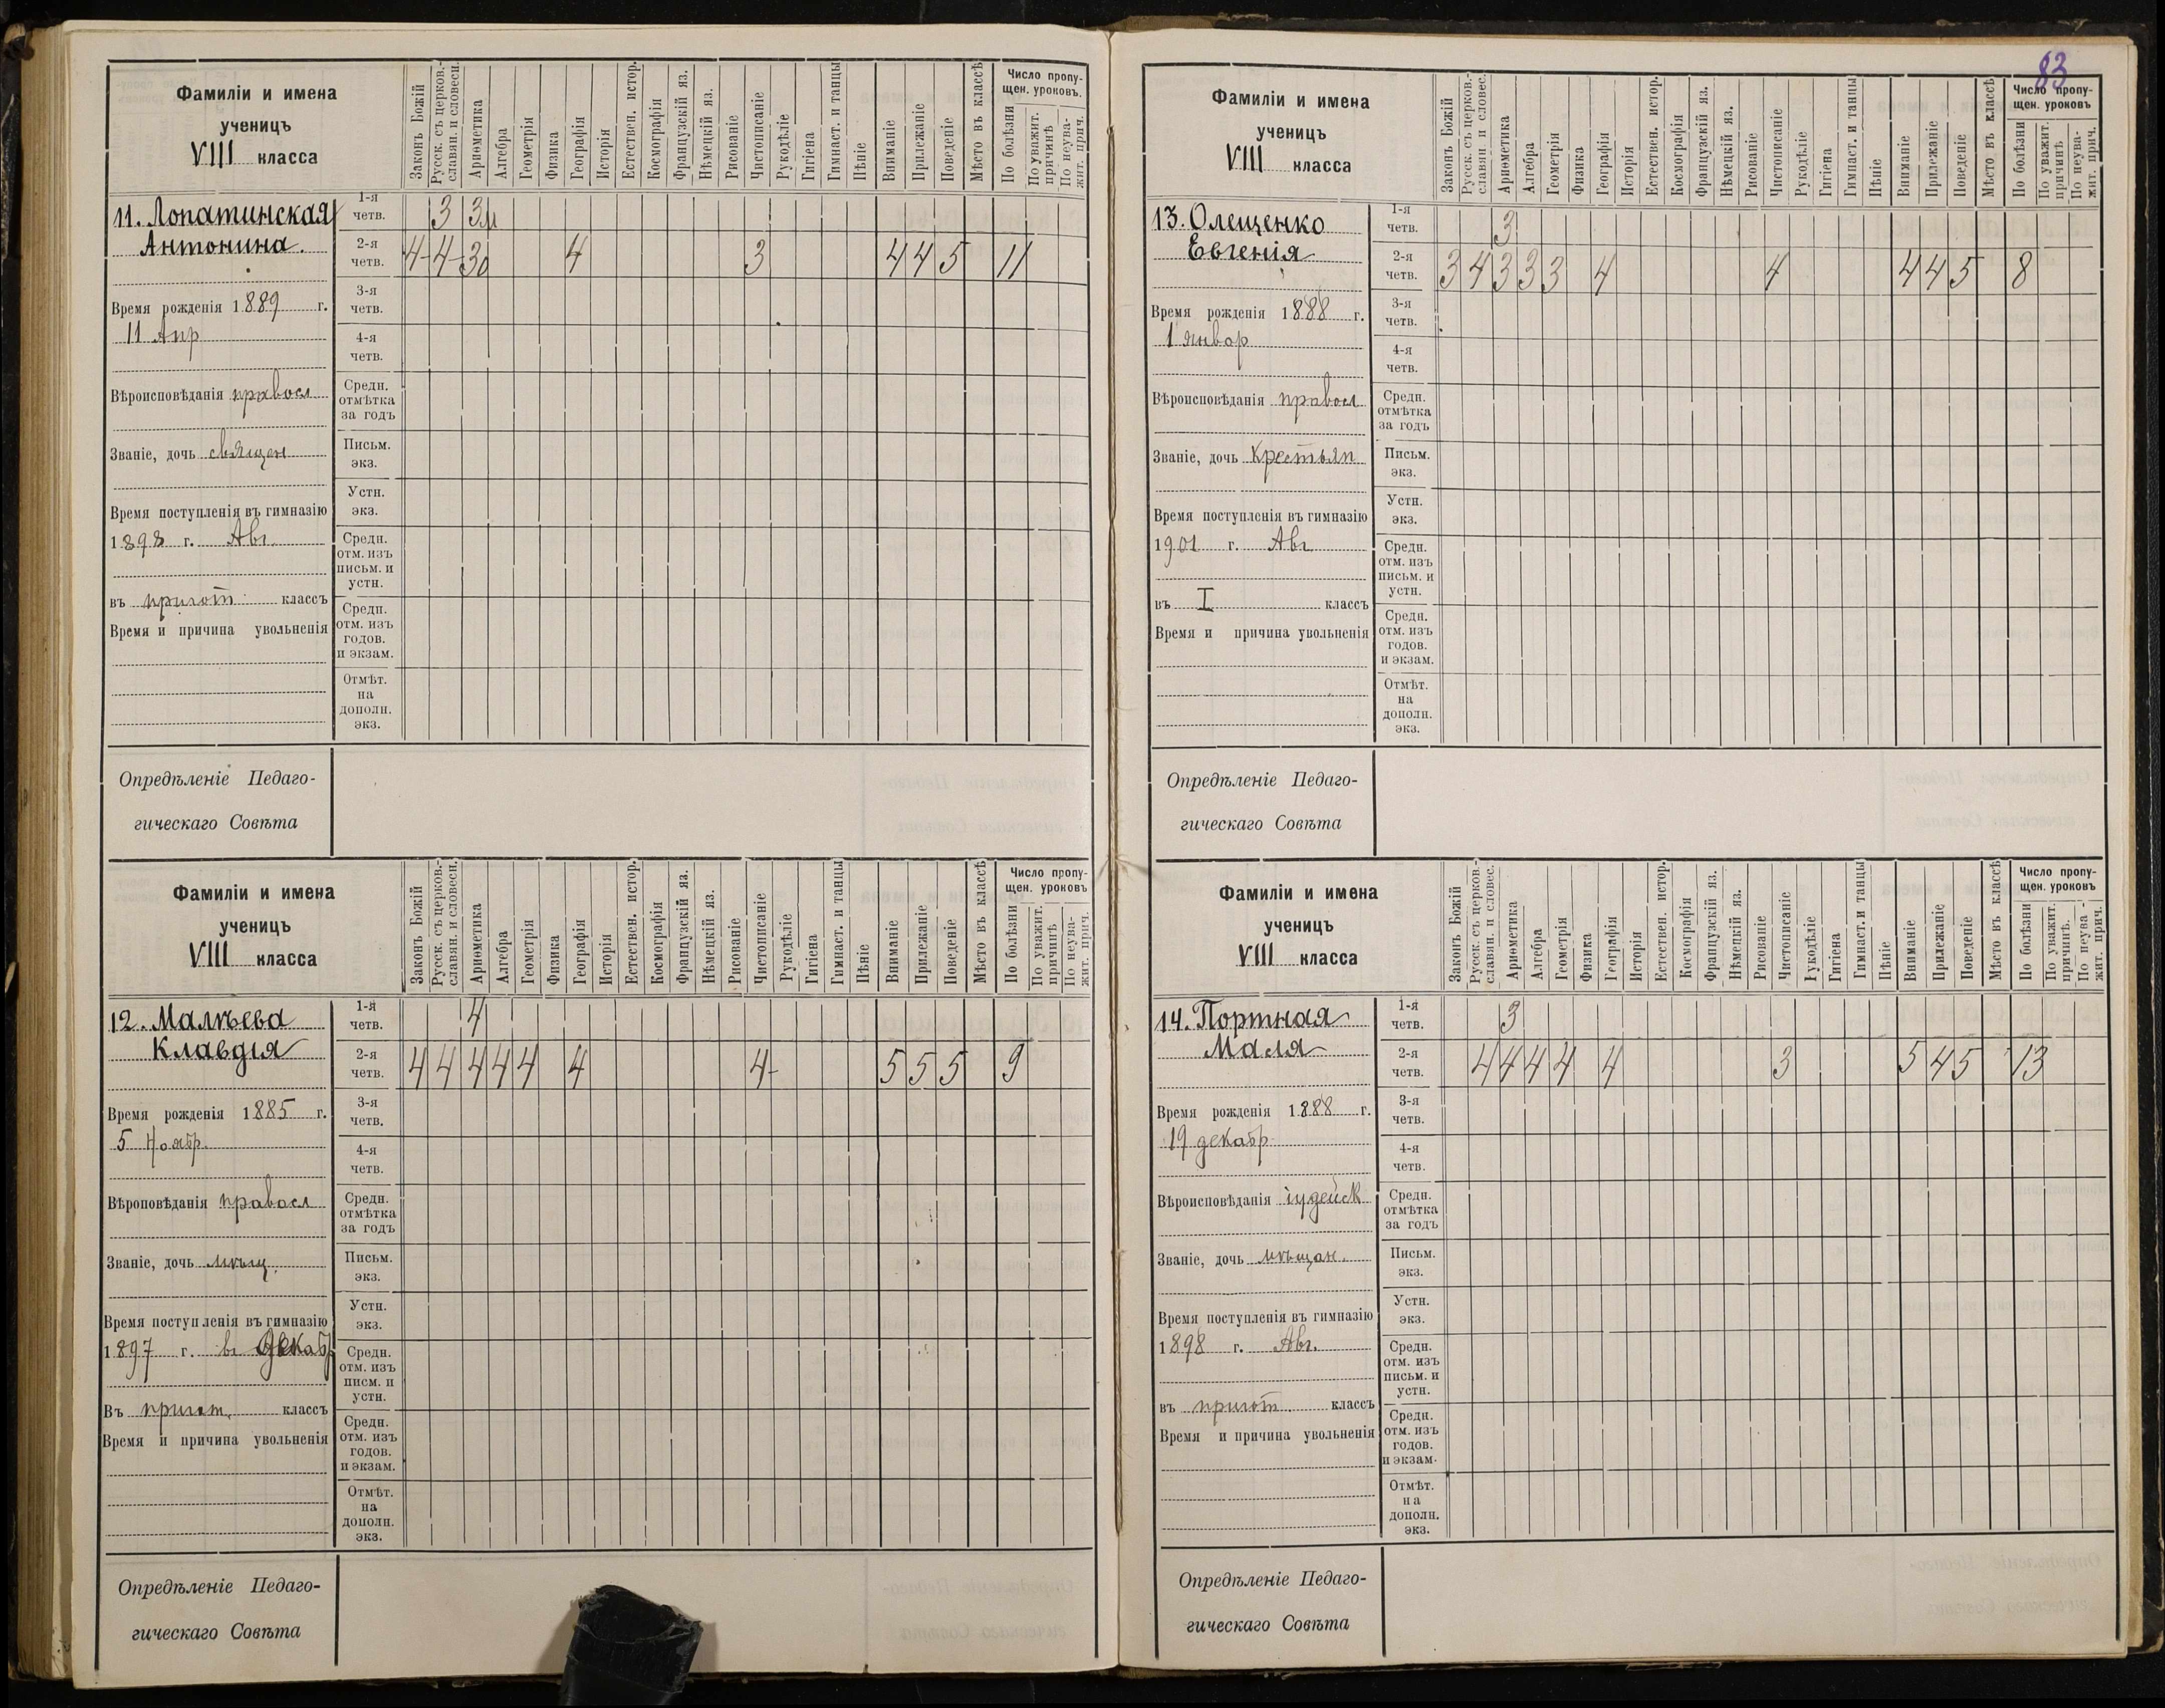 83
Фамиліи и имена
ученицъ
VIII класса
Законъ Божій
Русск. съ церков.-славян. и словесн.
Ариөметика
Алгебра
Геометрія
Физика
Географія
Исторія
Естествен. истор.
Космографія
Французскій яз.
Нѣмецкій яз.
Рисованіе
Чистописаніе
Рукодѣліе
Гигіена
Гимнаст. и танцы
Пѣніе
Вниманіе
Прилежаніе
Поведеніе
Мѣсто въ классѣ
Число пропу-
щен. уроковъ.
По болѣзни
По уважит. причинѣ
По неува-жит. прич.
11. Лопатинская
Антонина.
1-я четв. 3 3
2-я четв. 4- 4- 3 4 3 4 4 5 11
3-я четв.
4-я четв.
Время рожденія 1889 г.
11 Апр
Вѣроисповѣданія правосл
Званіе, дочь священ
Время поступленія въ гимназію
1898 г. Авг.
въ пригот классъ
Время и причина увольненія
Средн. отмѣтка за годъ
Письм. экз.
Устн. экз.
Средн. отм. изъ письм. и устн.
Средн. отм. изъ годов. и экзам.
Отмѣт. на дополн. экз.
Опредѣленіе Педаго-
гическаго Совѣта
Фамиліи и имена
ученицъ
VIII класса
Законъ Божій
Русск. съ церков.-славян. и словесн.
Ариөметика
Алгебра
Геометрія
Физика
Географія
Исторія
Естествен. истор.
Космографія
Французскій яз.
Нѣмецкій яз.
Рисованіе
Чистописаніе
Рукодѣліе
Гигіена
Гимнаст. и танцы
Пѣніе
Вниманіе
Прилежаніе
Поведеніе
Мѣсто въ классѣ
Число пропу-
щен. уроковъ
По болѣзни
По уважит. причинѣ
По неува-жит. прич.
12. Малѣева
Клавдія
1-я четв. 4
2-я четв. 4 4 4 4 4 4 4- 5 5 5 9
3-я четв.
4-я четв.
Время рожденія 1885 г.
5 Ноябр.
Вѣроповѣданія правосл
Званіе, дочь мѣщ.
Время поступленія въ гимназію
1897 г. въ Декабр
Въ пригот. классъ
Время и причина увольненія
Средн. отмѣтка за годъ
Письм. экз.
Устн. экз.
Средн. отм. изъ писм. и устн.
Средн. отм. изъ годов. и экзам.
Отмѣт. на дополн. экз.
Опредѣленіе Педаго-
гическаго Совѣта
Фамиліи и имена
ученицъ
VIII класса
Законъ Божій
Русск. съ церков.-славян и словес.
Ариөметика
Алгебра
Геометрія
Физика
Географія
Исторія
Естествен. истор.
Космографія
Французскій яз.
Нѣмецкій яз.
Рисованіе
Чистописаніе
Рукодѣліе
Гигіена
Гимнаст. и танцы
Пѣніе
Вниманіе
Прилежаніе
Поведеніе
Мѣсто въ классѣ
Число пропу-
щен. уроковъ
По болѣзни
По уважит. причинѣ
По неува-жит. прич.
13. Олещенко
Евгенія
1-я четв. 3
2-я четв. 3 4 3 3 3 4 4 4 4 5 8
3-я четв.
4-я четв.
Время рожденія 1888 г.
1 январ
Вѣроисповѣданія правосл
Званіе, дочь крестьян
Время поступленія въ гимназію
1901 г. Авг.
въ I классъ
Время и причина увольненія
Средн. отмѣтка за годъ
Письм. экз.
Устн. экз.
Средн. отм. изъ письм. и устн.
Средн. отм. изъ годов. и экзам.
Отмѣт. на дополн. экз.
Опредѣленіе Педаго-
гическаго Совѣта
Фамиліи и имена
ученицъ
VIII класса
Законъ Божій
Русск. съ церков.-славян. и словес.
Ариөметика
Алгебра
Геометрія
Физика
Географія
Исторія
Естествен. истор.
Космографія
Французскій яз.
Нѣмецкій яз.
Рисованіе
Чистописаніе
Рукодѣліе
Гигіена
Гимнаст. и танцы
Пѣніе
Вниманіе
Прилежаніе
Поведеніе
Мѣсто въ классѣ
Число пропу-
щен. уроковъ
По болѣзни
По уважит. причинѣ.
По неува-жит. прич.
14. Портная
Маля
1-я четв. 3
2-я четв. 4 4 4 4 4 3 5 4 5 13
3-я четв.
4-я четв.
Время рожденія 1888 г.
19 декабр.
Вѣроисповѣданія іудейск
Званіе, дочь мѣщан.
Время поступленія въ гимназію
1898 г. Авг.
въ пригот. классъ
Время и причина увольненія
Средн. отмѣтка за годъ
Письм. экз.
Устн. экз.
Средн. отм. изъ письм. и устн.
Средн. отм. изъ годов. и экзам.
Отмѣт. на дополн. экз.
Опредѣленіе Педаго-
гическаго Совѣта